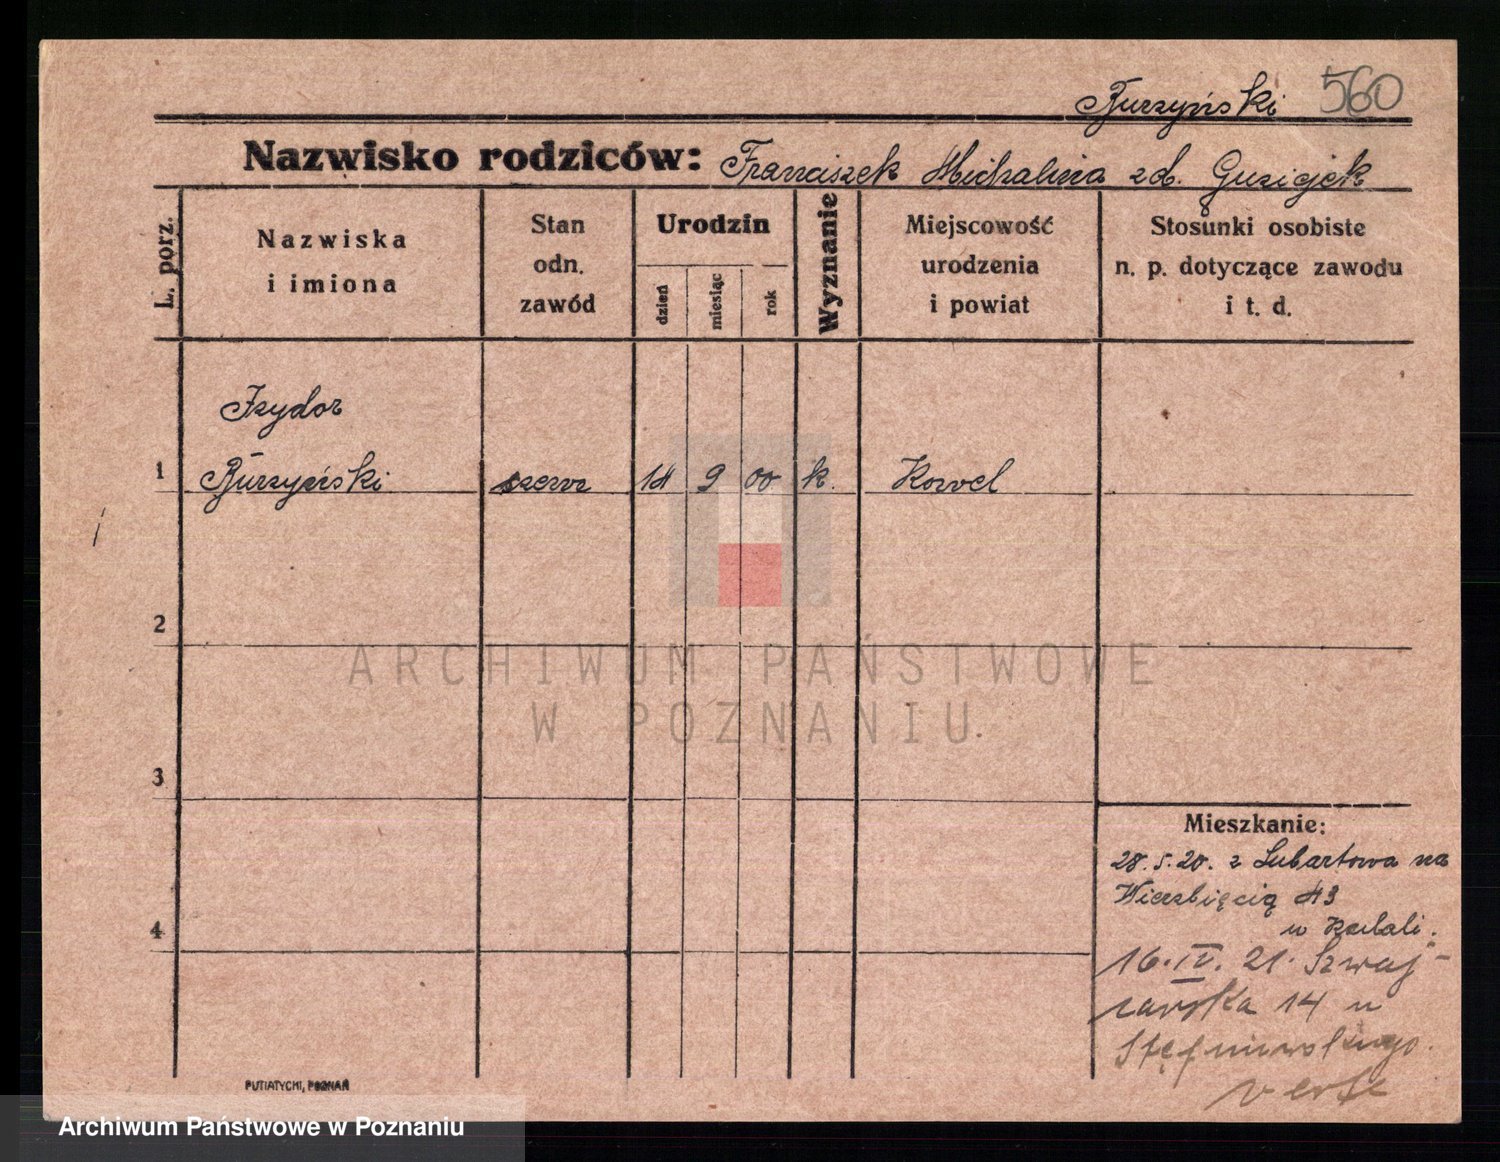 Burzyński 560
Nazwisko rodziców: Franciszek Michalina zd. Guzicjek
L. porz.
Nazwiska
i imiona
Stan
odn.
zawód
Urodzin
dzień
miesiąc
rok
Wyznanie
Miejscowość
urodzenia
i powiat
Stosunki osobiste
n. p. dotyczące zawodu
i t. d.
Izydor
1 Burzyński szewc 14 9 00 k. Kowel
2
3
4
Mieszkanie:
28.5.20. z Lubartowa na
Wierzbięcią 43
u Kubali.
16.IV.21. Szwaj-
carska 14 u
verte
PUTIATYCKI, POZNAŃ
ARCHIWUM PAŃSTWOWE
W POZNANIU
Archiwum Państwowe w Poznaniu